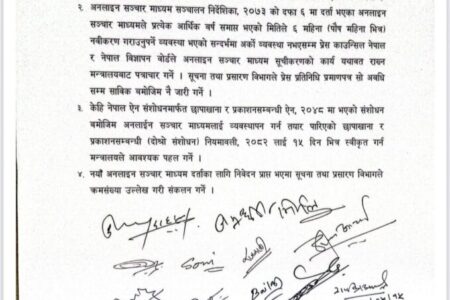 २. अनलाइन सञ्चार माध्यम सञ्चालन निर्देशिका, २०७३ को दफा ६ मा दर्ता भएका अनलाइन
सञ्चार माध्यमले प्रत्येक आर्थिक वर्ष समाप्त भएको मितिले ६ महिना (पौष महिना भित्र)
नवीकरण गराउनुपर्ने व्यवस्था भएको सन्दर्भमा अर्को व्यवस्था नभएसम्म प्रेस काउन्सिल नेपाल
र नेपाल विज्ञापन बोर्डले अनलाइन सञ्चार माध्यम सूचीकरणको कार्य यथावत राख्न
मन्त्रालयबाट पत्राचार गर्ने । सूचना तथा प्रसारण विभागले प्रेस प्रतिनिधि प्रमाणपत्र सो अवधि
सम्म साबिक बमोजिम नै जारी गर्ने ।
३. केहि नेपाल ऐन संशोधनमार्फत छापाखाना र प्रकाशनसम्बन्धी ऐन, २०४८ मा भएको संशोधन
बमोजिम अनलाईन सञ्चार माध्यमलाई व्यवस्थापन गर्न तयार पारिएको छापाखाना र
प्रकाशनसम्बन्धी (दोश्रो संशोधन) नियमावली, २०८२ लाई १५ दिन भित्र स्वीकृत गर्न
मन्त्रालयले आवश्यक पहल गर्ने ।
४. नयाँ अनलाइन सञ्चार माध्यम दर्ताका लागि निवेदन प्राप्त भएमा सूचना तथा प्रसारण विभागले
क्रमसंख्या उल्लेख गरी संकलन गर्ने ।